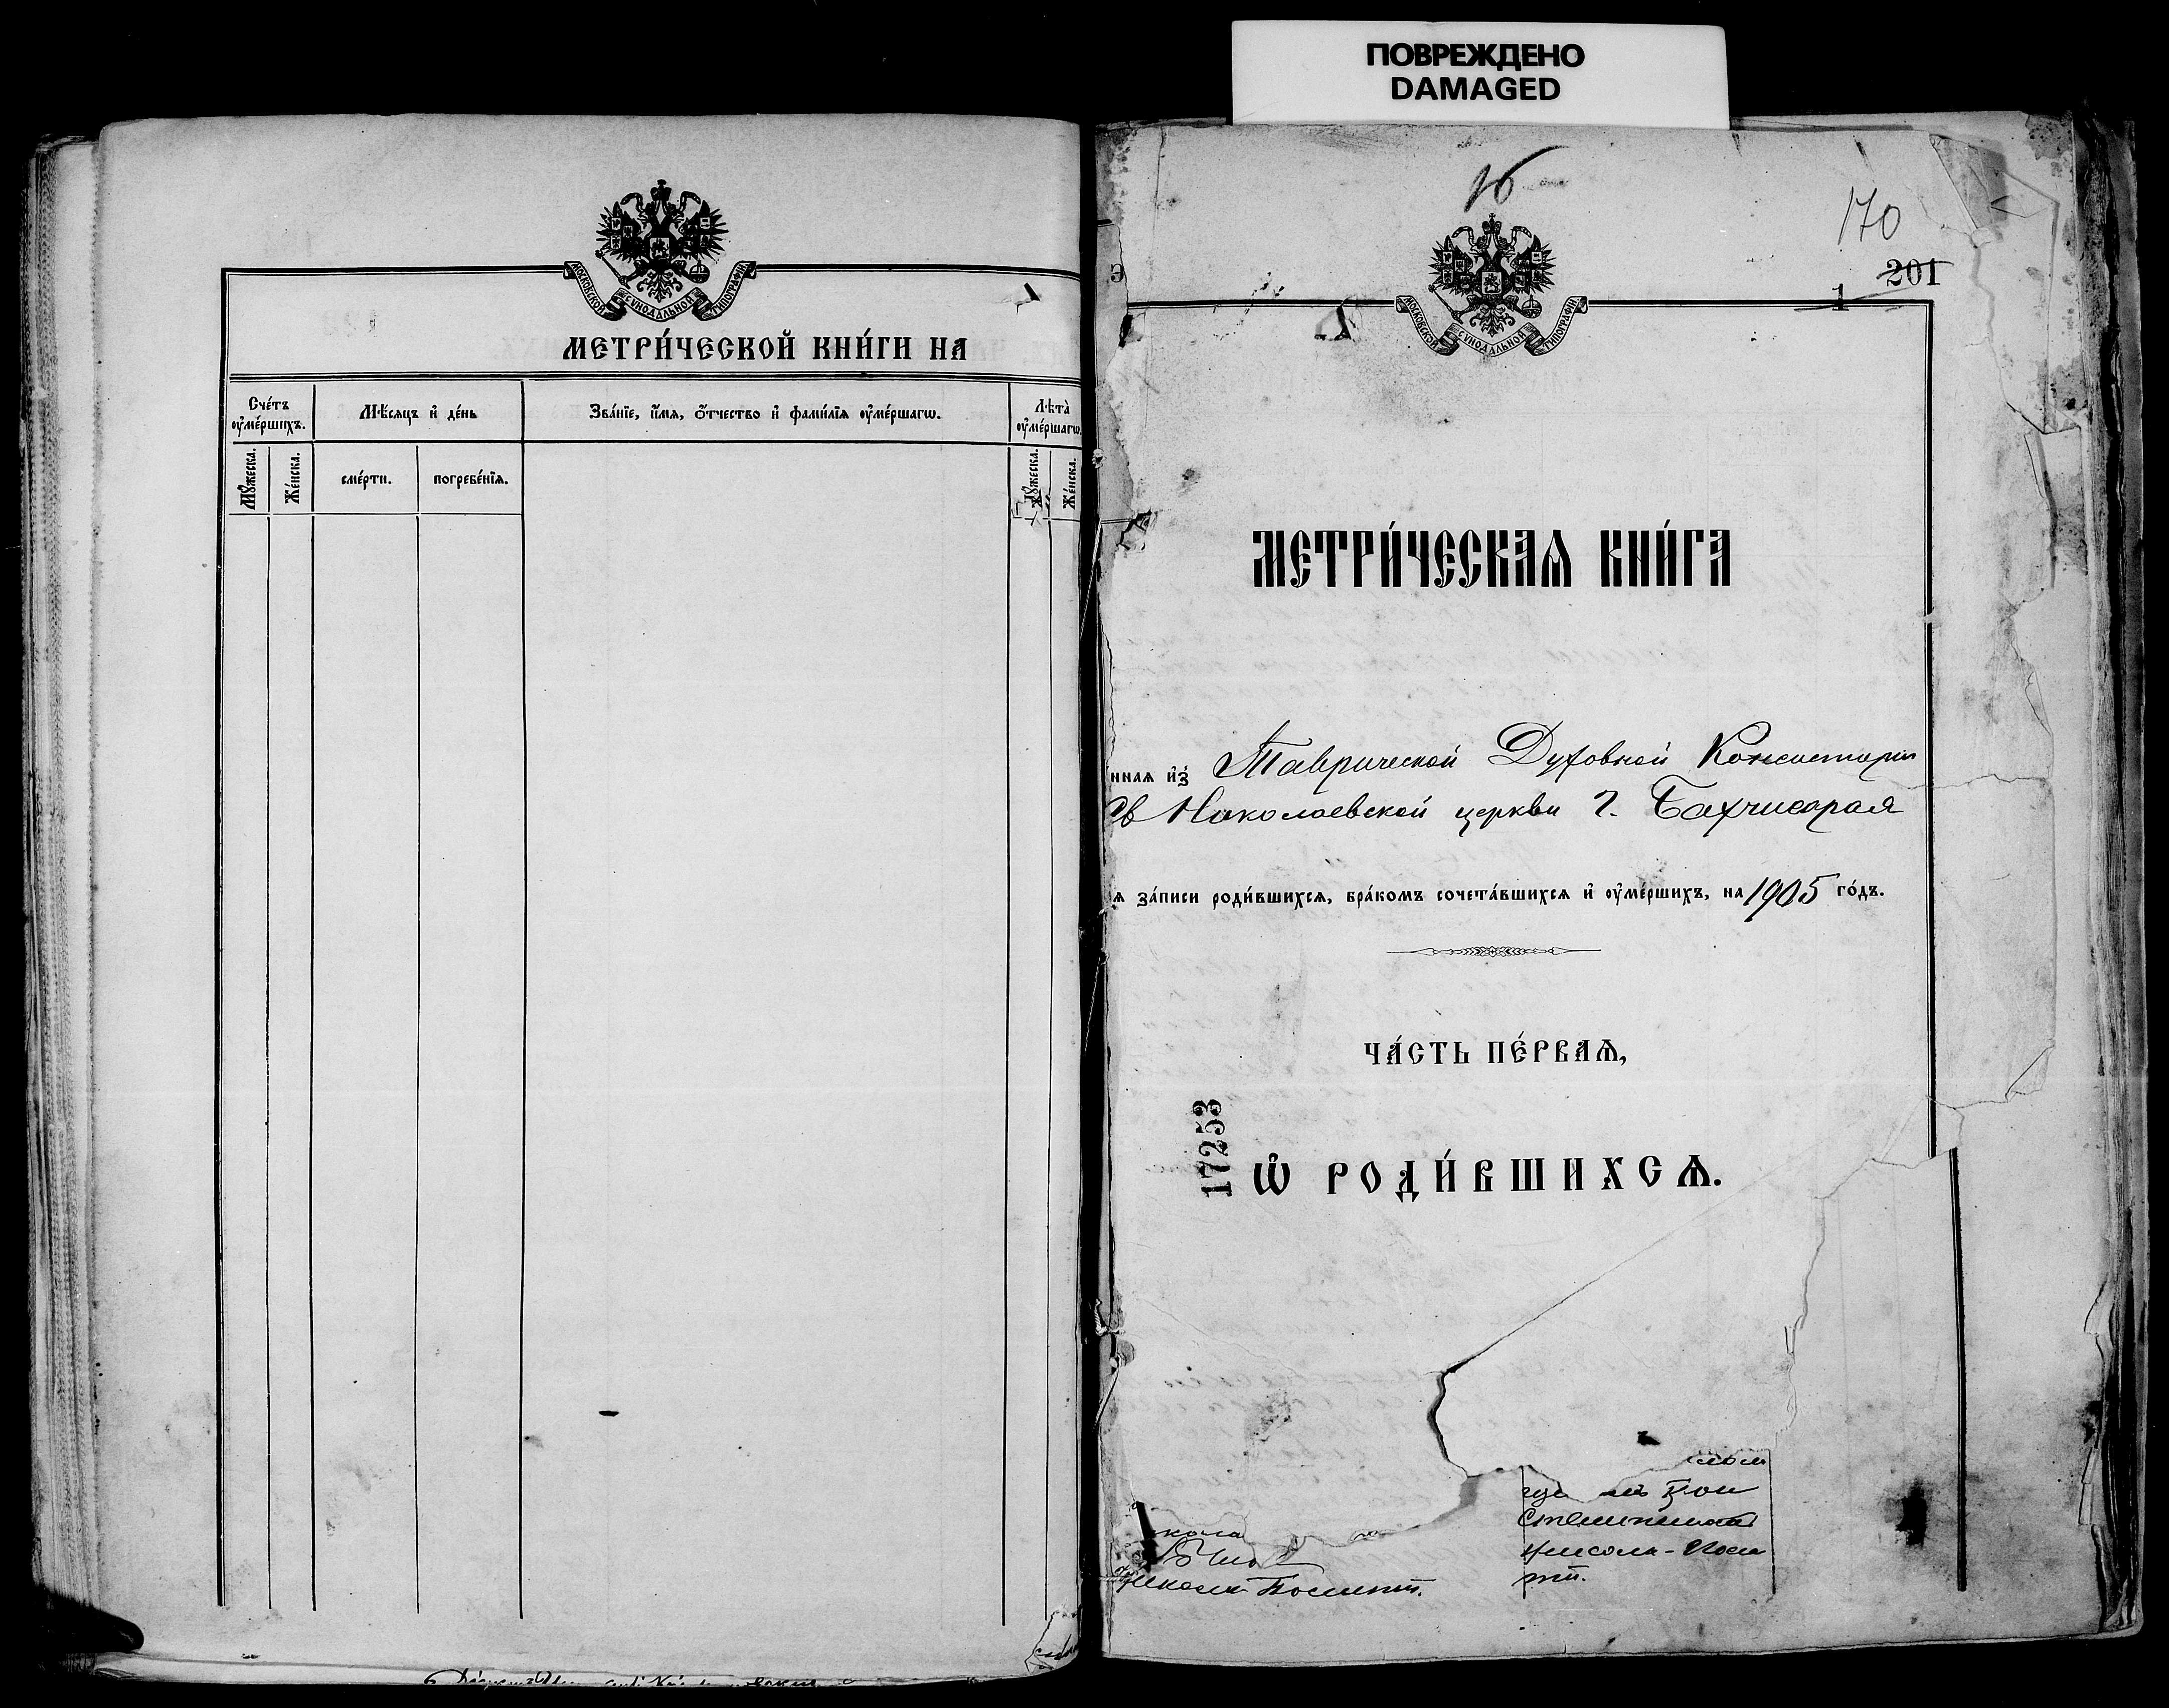 ПОВРЕЖДЕНО
DAMAGED
МОСКОВСКОЙ СѴНОДАЛЬНОЙ ТИПОГРАФІИ
МЕТРИ́ЧЕСКОЙ КНИ́ГИ НА
Сче́тъ ᲂу҆ме́ршихъ.
Мѣ́сяцъ и҆ де́нь
Зва́нїе, и҆́мѧ, ѻ҆́тчество и҆ фами́лїѧ ᲂу҆ме́ршагѡ.
Лѣта̀ ᲂу҆ме́ршагѡ
Мꙋ́жеска.
Же́нска.
сме́рти.
погребе́нїѧ.
Мꙋ́жеска.
Же́нска.
16
170
201
1
МОСКОВСКОЙ СѴНОДАЛЬНОЙ ТИПОГРАФІИ
МЕТРИ́ЧЕСКАѦ КНИ́ГА
ннаѧ и҆з̾ Таврической Духовной Консисторіи
Николаевской церкви г. Бахчисарая
ѧ за́писи роди́вшихсѧ, бра́комъ сочета́вшихсѧ и҆ ᲂу҆ме́ршихъ, на 1905 го́дъ.
ЧА́СТЬ ПЕ́РВАѦ,
17253
Ѡ҆ РОДИ́ВШИХСѦ.